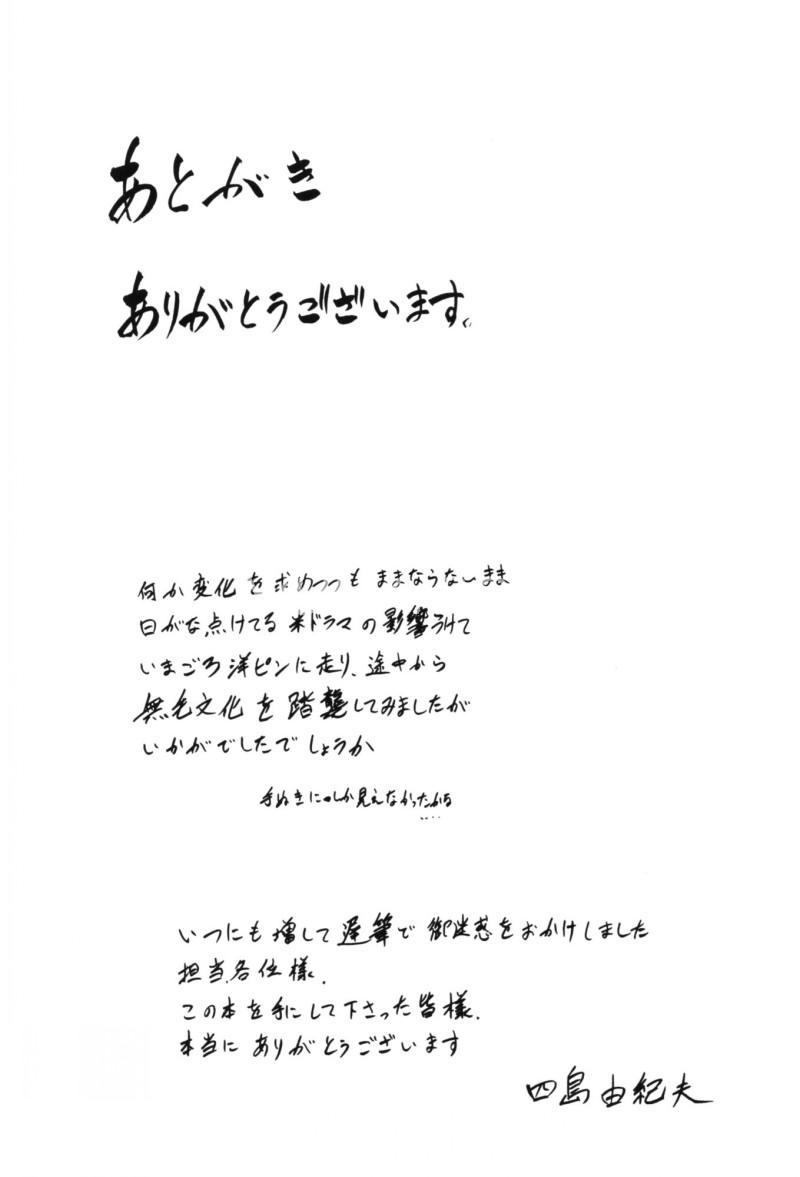 あとがき
ありがとうございます。
何か変化を求めつつもままならないまま
日がな点けてる米ドラマの影響うけて
いまごろ洋ピンに走り、途中から
無毛文化を踏襲してみましたが
いかがでしたでしょうか
手ぬきにしか見えなかったから
....
いつにも増して遅筆で御迷惑をおかけしました
担当各位様、
この本を手にして下さった皆様、
本当にありがとうございます
四島由紀夫